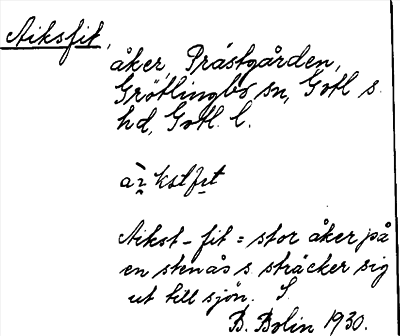 Aiksfit,
åker Prästgården,
Grötlingbo sn, Gotl s.
hd, Gotl. l.
Aikst-fit = stor åker på
en stenås s. sträcker sig
ut till sjön. S.
B. Bolin 1930.